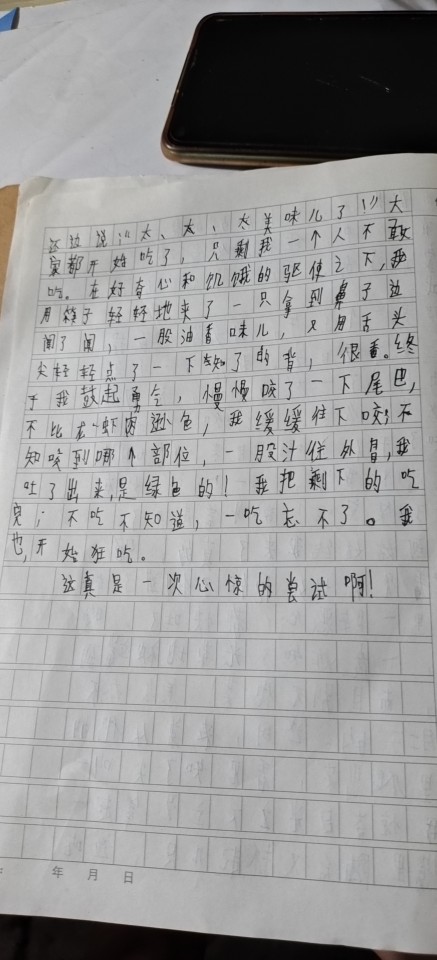 还边说:"太、太、太美味儿了!"大
家都开始吃了,只剩我一个人不敢
吃。在好奇心和饥饿的驱使之下,我
用筷子轻轻地夹了一只拿到鼻子边
闻了闻,一股油香味儿,又用舌头
尖轻轻点了一下知了的背,很香。终
于我鼓起勇气,慢慢咬了一下尾巴,
不比龙虾肉逊色,我缓缓往下咬,不
知咬到哪个部位,一股汁往外冒,我
吐了出来,是绿色的!我把剩下的吃
完;不吃不知道,一吃忘不了。我
也,开始狂吃。
这真是一次心惊的尝试啊!
年 月 日